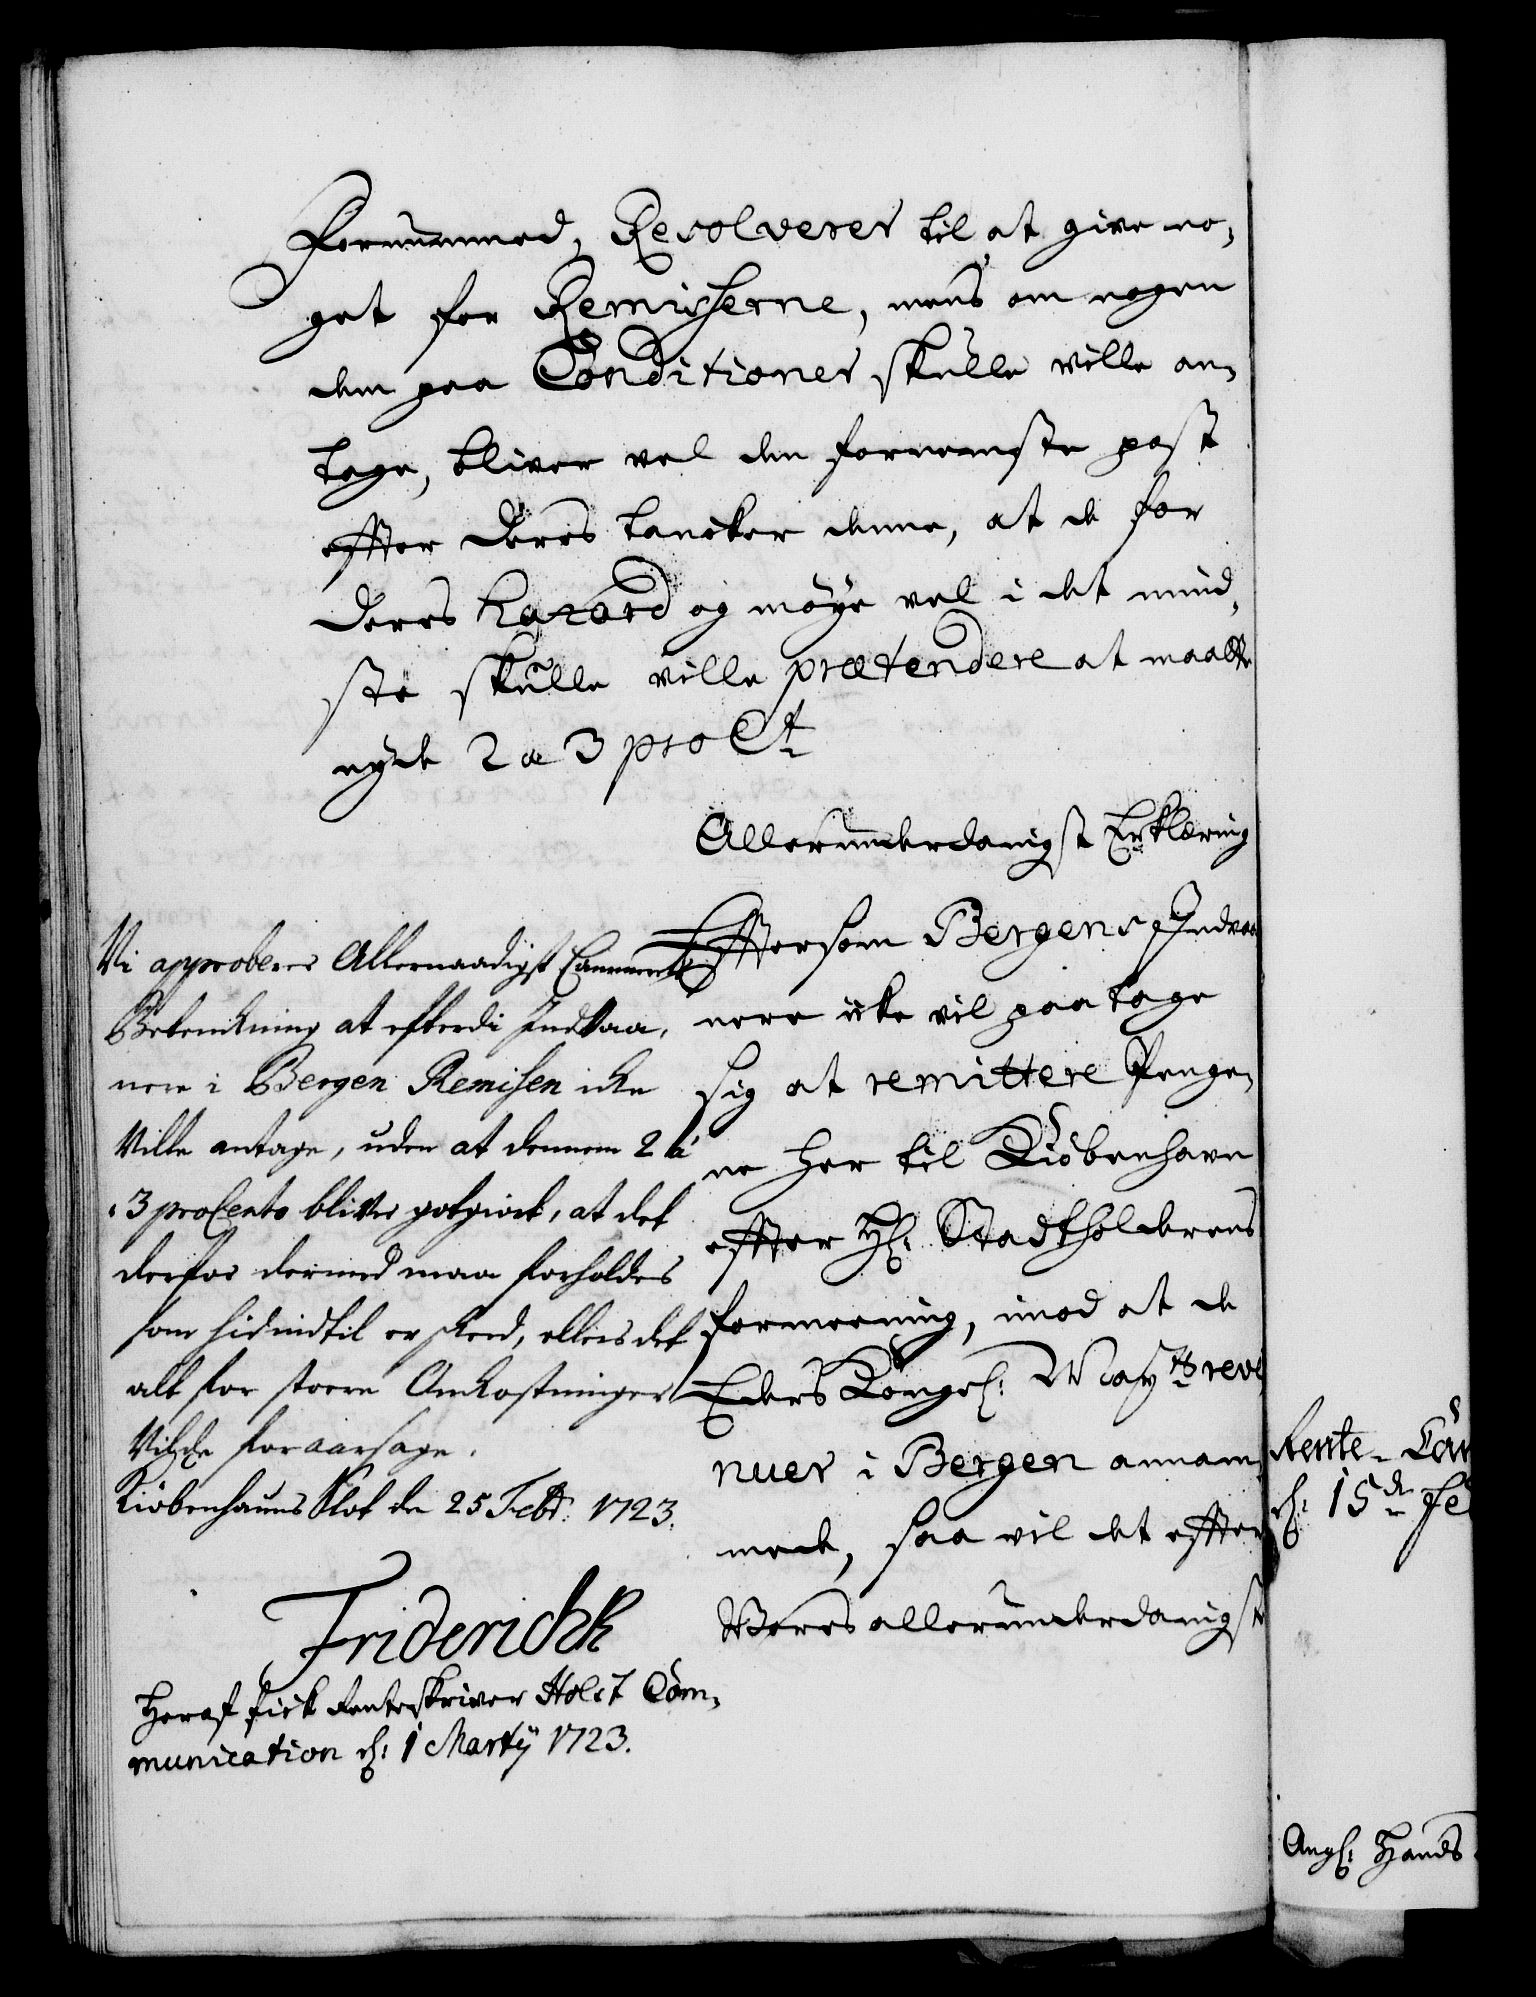 Forunmmed, Resolverer til at give no,
get for Remisserne, mens om nogen
dem paa Conditioner skulle ville an,
tage, bliver vel den fornemste post
effter deres tancker denne, at de for
deres hazard og møye vel i det mind,
ste skulle ville prætendere at maatte
nyde 2 a 3 pro Ct
Allerunderdanigst Erklæring
Efftersom Bergens Indvaa
nere icke vil paatage
sig at remittere Penge,
ne her til Kiøbenhavn
effter H: Stadtholderens
formeening, imod at de
Eders Kongel: May.ts reve
nuer i Bergen annam,
mede, saa vil det effter
Vores allerunderdanigste
Vi approberer Allernaadigst Cammerets
Betenkning at efterdi Indvaa,
nere i Bergen Remisen icke
Ville antage, uden at dennem 2 à
3 proCento bliver gotgiort, at det
derfor dermed maa forholdes
som hidindtil er skeed, ellers det
alt for stoere Omkostninger
Vilde foraarsage.
Kiøbenhauns Slot den 25 Febr: 1723.
Friderich R
Heraf fick Renteskriver Holst Com,
munication d: 1 Martij 1723.
Rente-Cam
d: 15de Fe
Angl: Hands